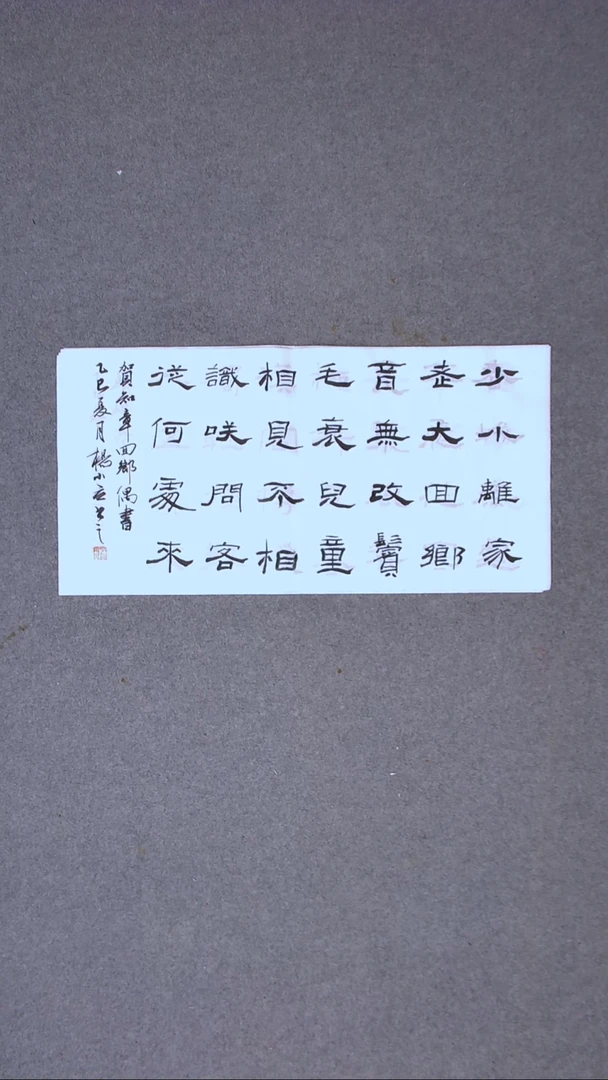 少小離家
老大回鄉
音無改鬢
毛衰兒童
相見不相
識咲問客
從何處來
賀知章回鄉偶書
乙巳夏月楊小書之